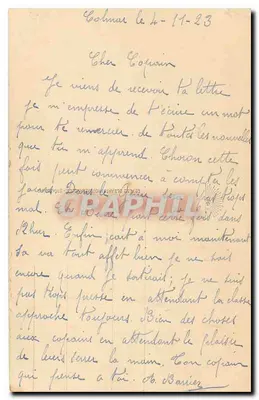 Colmar le 4-11-23
Cher Copain
Je viens de recevoir ta lettre
je m'empresse de t'écrire un mot
pour te remercier de toutes les nouvelles
que tu m'apprend. Choron cette
fois peut commencer à compter les
jours Dans
mal.
Cher. Enfin, c'ait à moi maintenant
Sa va tout affet bien je ne sait
encore quand je sortirait; je ne suis
pas pressé en attendant la classe
approche toujours. Bien des choses
aux copains en attendant le plaisir
de leurs serrer la main. Ton copain
qui pense a toi.